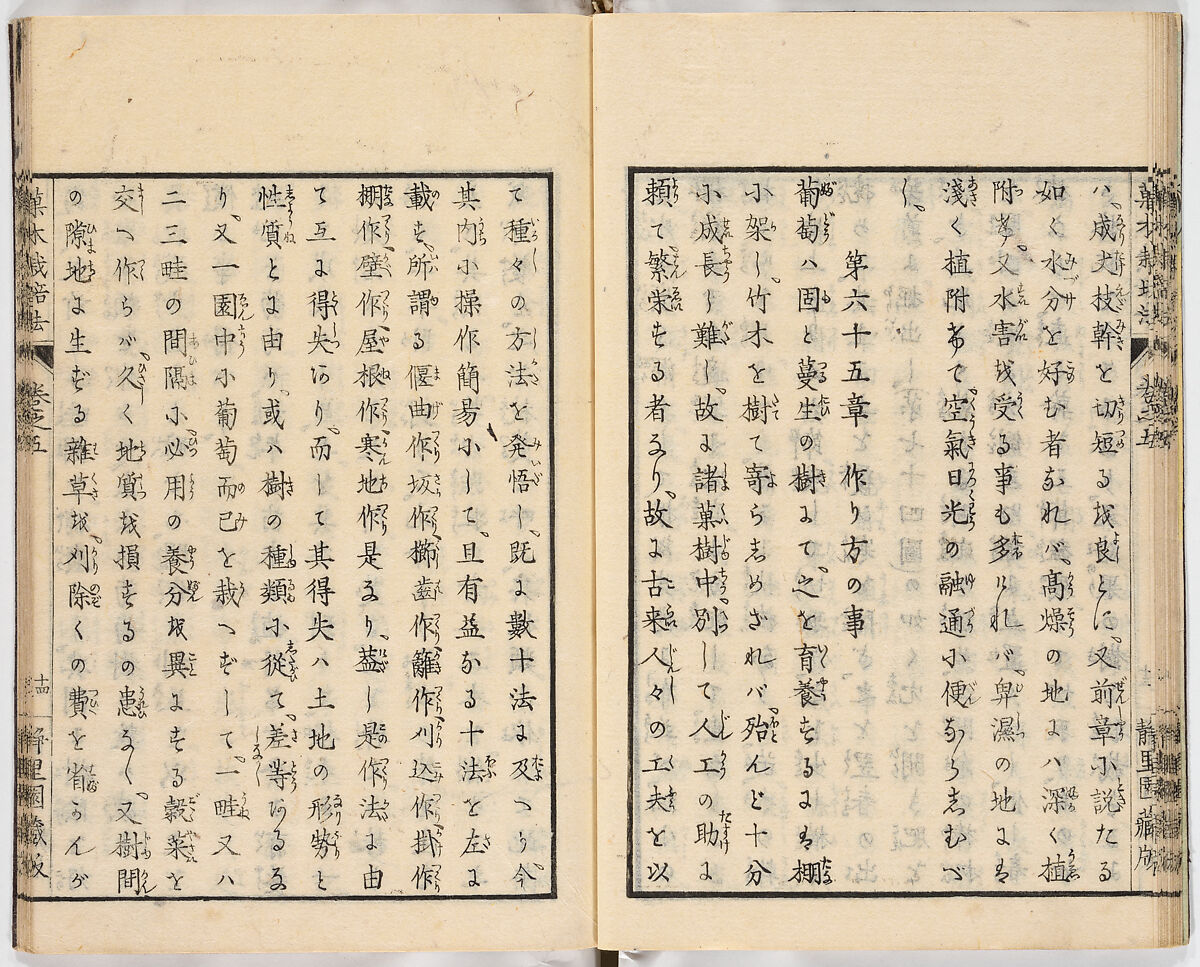 菓木栽培法　卷之五　靜里園藏版
ハ、成丈技幹を切短る我良とに、又前章小説たる
如く水分と好む者なれバ、髙燥の地にハ深く植
附け、又水害我受る事も多けれバ、卑濕の地にハ
淺く植附希で空氣日光の融通小便ならしむべ
し、
第六十五章　作り方の事
葡萄ハ固と蔓生の樹にて、之を育養するにハ棚
小架し、竹木を樹て寄らしめざれバ、殆んど十分
小成長し難し、故に諸菓樹中別して人工の助に
頼て繁栄する者なり、故に古来人々の工夫を以
て種々の方法を発悟し、既に數十法に及へり、今
其内小操作簡易小して、且有益なる十法を左に
載す、所謂る偃曲作坂作櫛齒作籬作刈込作掛作
棚作壁作屋根作寒地作是なり、葢し是作法に由
て互に得失あり、而して其得失ハ土地の形勢と
性質とに由り、或ハ樹の種類小從て、差等あるな
り、又一園中小葡萄而已を栽へずして、一畦又ハ
二三畦の間隔小必用の養分我異にする穀菜を
交へ作らバ、久く地質我損するの患なく、又樹間
の隙地に生ずる雜草我、刈除くの費を省かんが
菓木栽培法　卷之五　十四　靜里園藏版